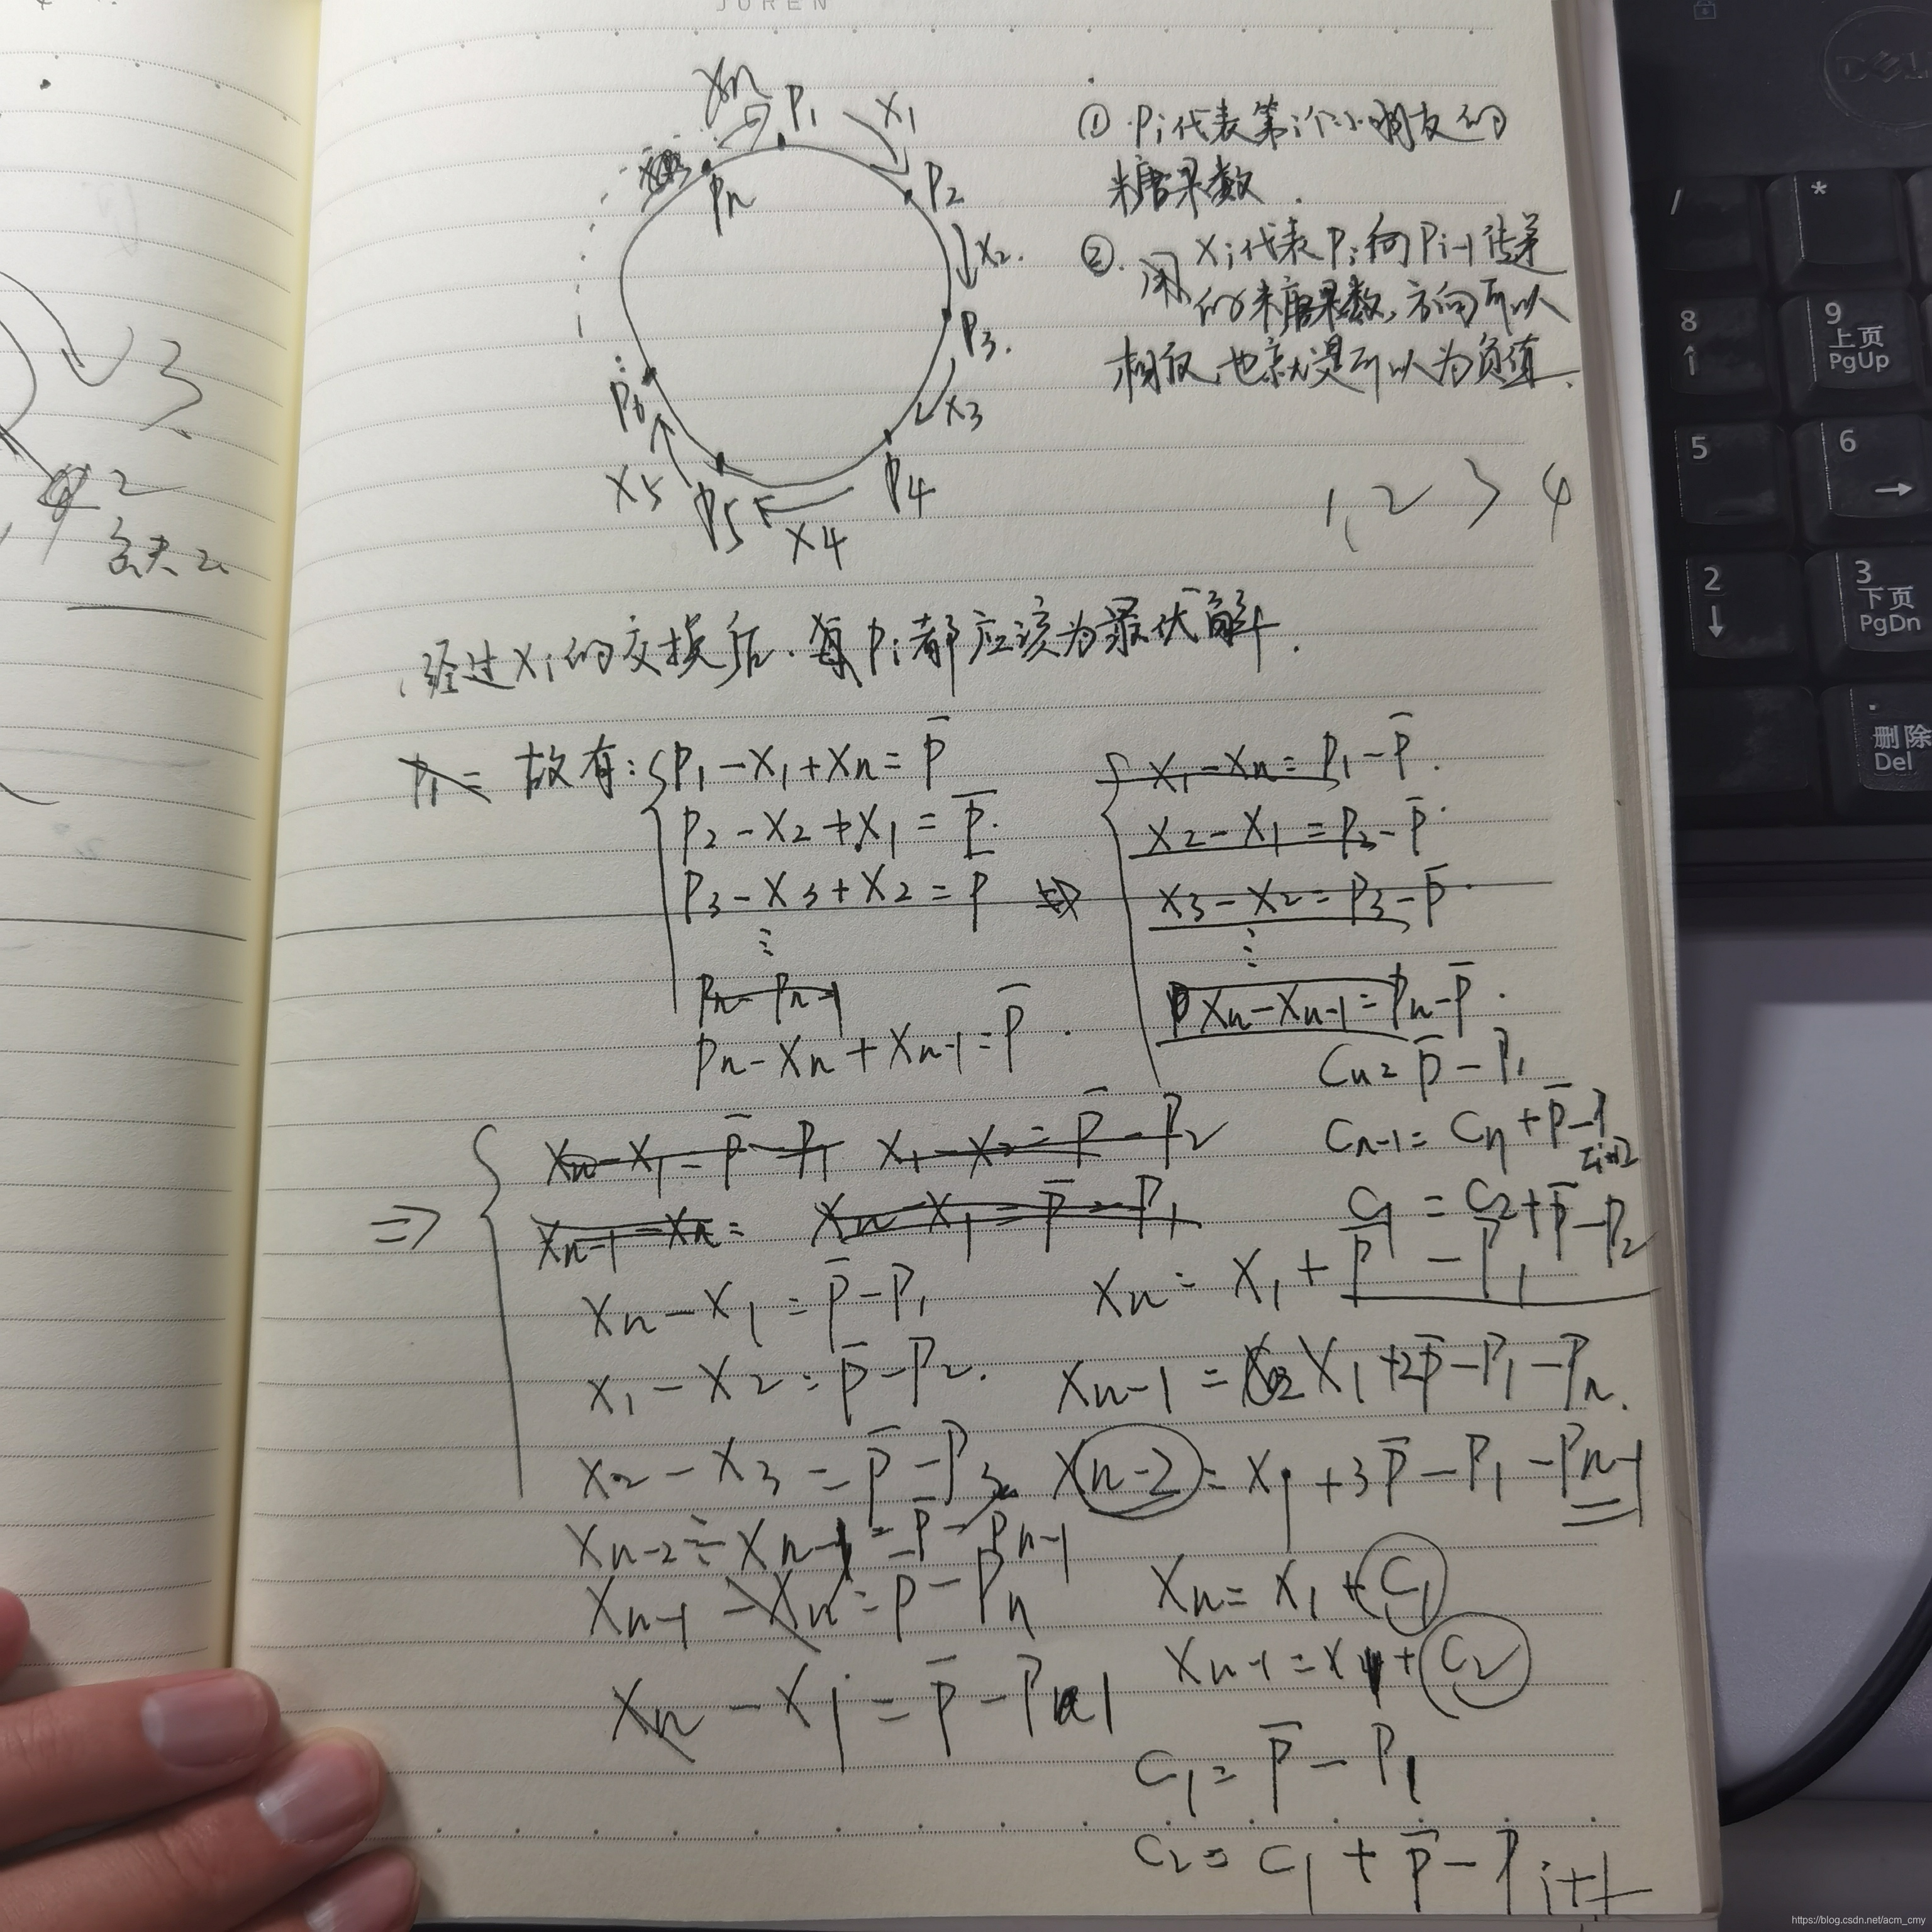 JUREN
Xn
P1
X1
Pn
P2
X2.
P3.
X3
P4
X4
P5
X5
P6
① Pi代表第i个小朋友的
糖果数.
②. 用Xi代表Pi向Pi-1传递
的糖果数,方向可以
相反,也就是可以为负值.
1, 2 3 4
3
2
缺2
经过Xi的交换后.每Pi都应该为最优解.
P1= 故有:
P1-X1+Xn=P̄
P2-X2+X1=P̄.
P3-X3+X2=P
⋮
Pn-Pn-1
Pn-Xn+Xn-1=P̄.
X1-Xn=P1-P̄.
X2-X1=P2-P̄.
X3-X2=P3-P̄.
⋮
Xn-Xn-1=Pn-P̄.
Cn=P̄-P1
Cn-1=Cn+P̄-P
C1=C2+P̄-P2
⇒
Xn-X1=P̄-P1 X1-X2=P̄-P2
Xn-1-Xn= Xn-X1=P̄-P1
Xn-X1=P̄-P1
X1-X2=P̄-P2.
X2-X3=P̄-P3
Xn-2-Xn-1=P̄-Pn-1
Xn-1-Xn=P-Pn
Xn=X1+P̄-P1
Xn-1=X1+2P̄-P1-Pn.
Xn-2=X1+3P̄-P1-Pn-1
Xn=X1+C1
Xn-1=X1+C2
C1=P̄-P1
C2=C1+P̄-Pi+1
DELL
/
*
8
↑
9
上页
PgUp
5
6
→
2
↓
3
下页
PgDn
.
删除
Del
https://blog.csdn.net/acm_cmy